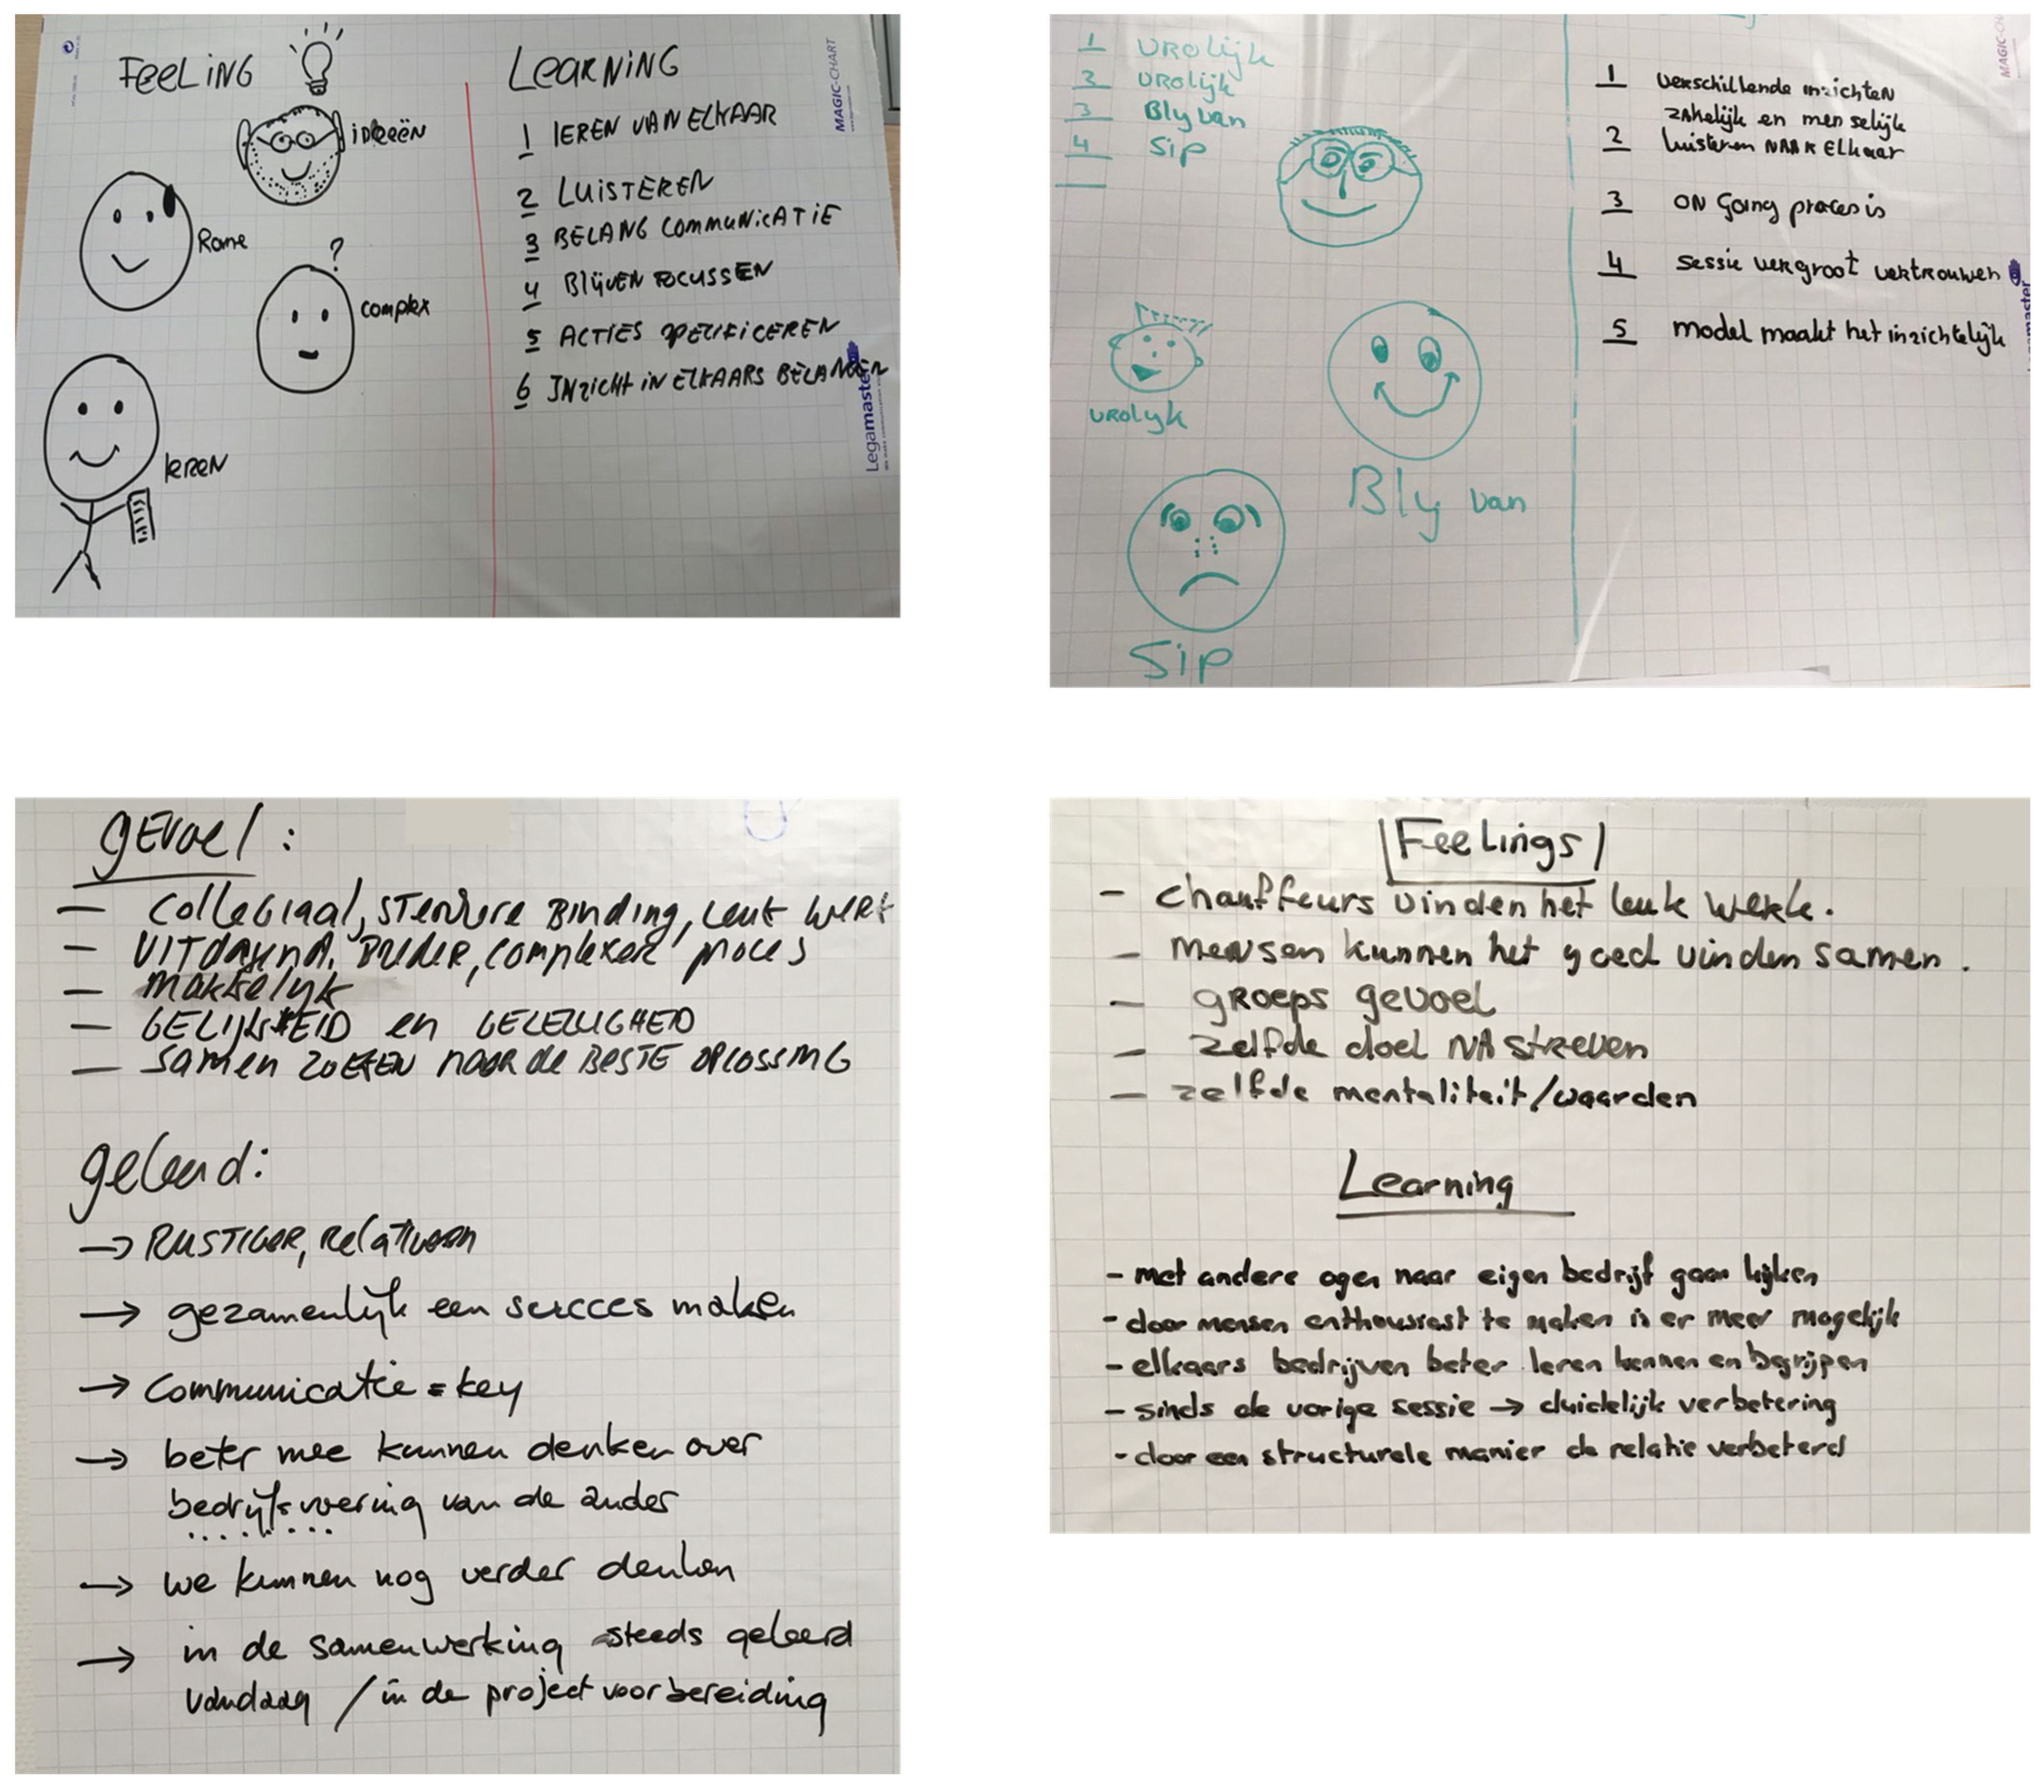 FeeLiNG
ideeën
Rome
?
complex
leren
LeaRNiNG
1 lEREN VAN ELKAAR
2 LuiSTEREN
3 BELANG COMMUNICATiE
4 BlijvEN FOCUSSEN
5 ACTiES SPECiFiCEREN
6 INzicht iN ELKAARS BELANGEN
MAGIC-CHART
Legamaster
1 VROlijk
2 VROlijk
3 Bly van
4 Sip
VROlyk
Bly van
Sip
1 verschillende inzichten
zakelijk en menselijk
2 luisteren NAAR Elkaar
3 ON Going proces is
4 sessie vergroot vertrouwen
5 model maakt het inzichtelijk
gevoel:
— Collegiaal, STERKere BINDING, Leuk WERK
— UITDAGEND, BREDER, complexer proces
— makkelyk
— GELIJKHEID en GEZELLIGHEID
— samen ZOEKEN naar de BESTE OPLOSSING
geleerd:
→ RUSTIGER, Relativeren
→ gezamenlyk een succes maken
→ Communicatie = key
→ beter mee kunnen denken over
bedryfsvoering van de ander
→ we kunnen nog verder denken
→ in de samenwerking steeds geleerd
vandaag / in de project voorbereiding
Feelings
- chauffeurs vinden het leuk werk.
- mensen kunnen het goed vinden samen.
- groeps gevoel
- zelfde doel NAstreven
- zelfde mentaliteit/waarden
Learning
- met andere ogen naar eigen bedrijf gaan kijken
- door mensen enthousiast te maken is er meer mogelijk
- elkaars bedrijven beter leren kennen en begrijpen
- sinds de vorige sessie → duidelijk verbetering
- door een structurele manier de relatie verbeterd